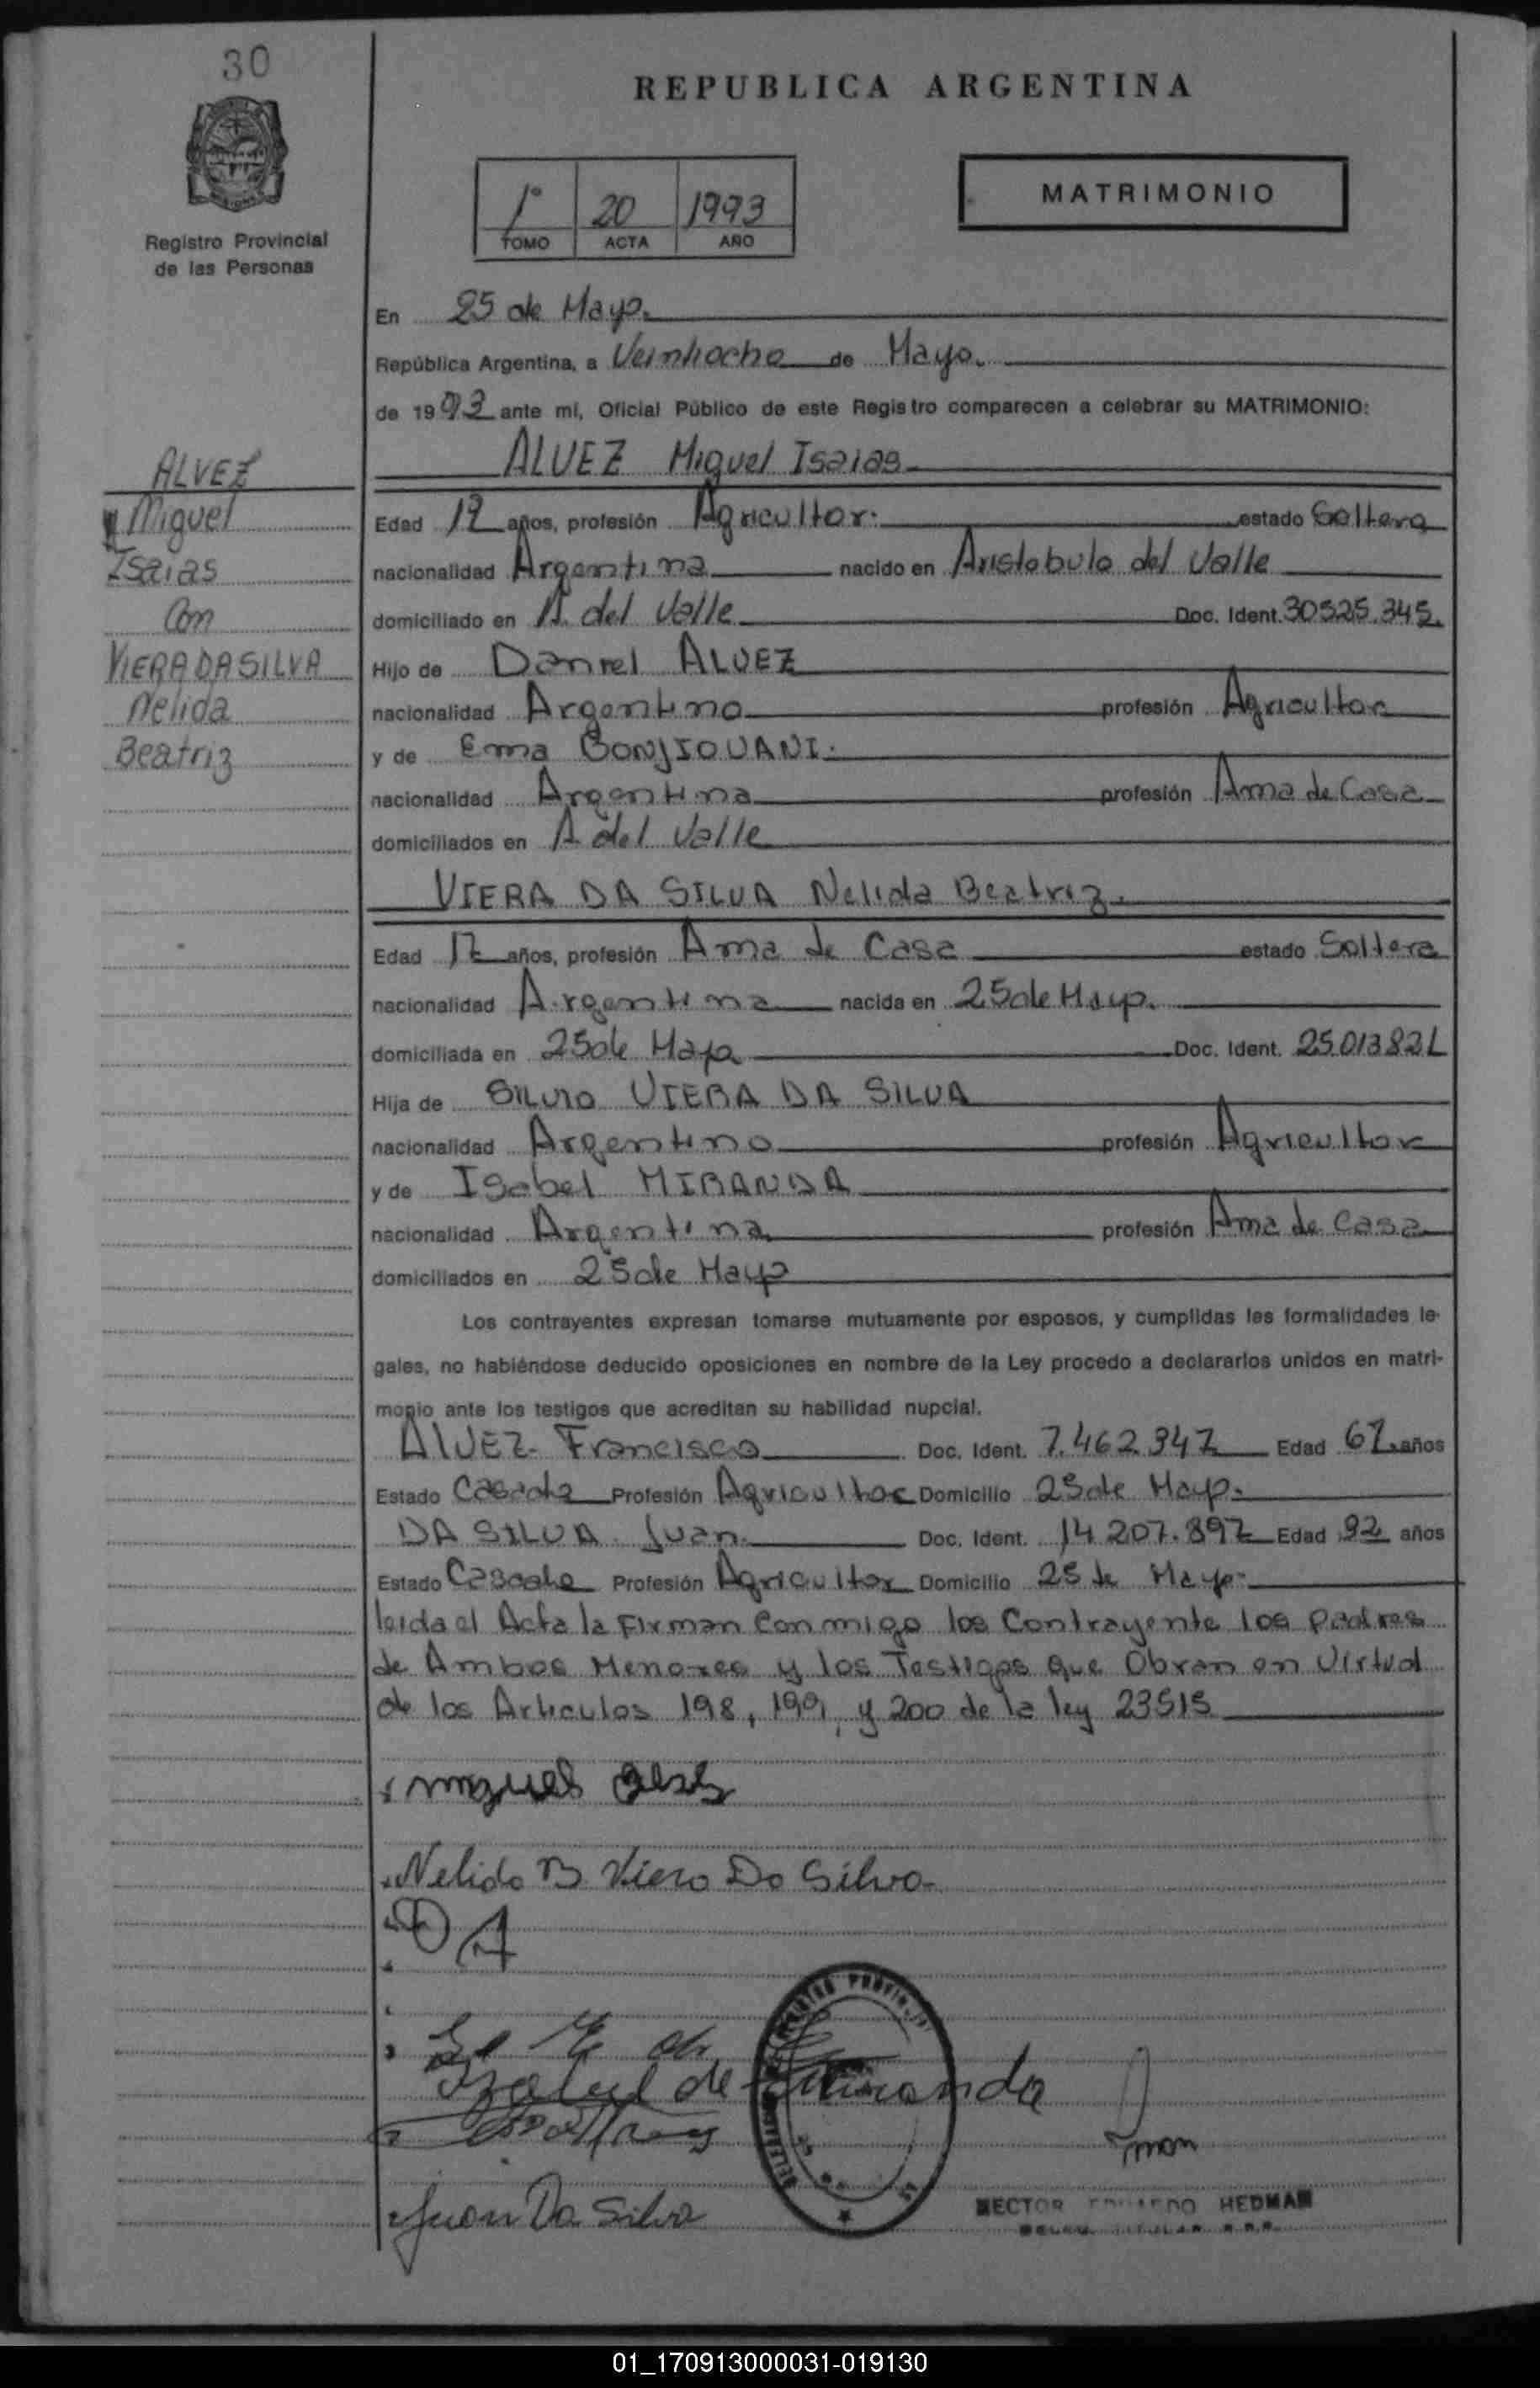 30
REPUBLICA ARGENTINA
1° 20 1993
TOMO ACTA AÑO
MATRIMONIO
Registro Provincial
de las Personas
En 25 de Mayo.
República Argentina, a Veintiocho de Mayo.
de 1993 ante mi, Oficial Público de este Registro comparecen a celebrar su MATRIMONIO:
ALVEZ Miguel Isaias
ALVEZ
Miguel
Isaias
Con
VIERA DA SILVA
Nelida
Beatriz
Edad años, profesión Agricultor. estado Soltero
nacionalidad Argentina nacido en Aristobulo del Valle
domiciliado en A. del Valle Doc. Ident. 30525.345.
Hijo de Daniel ALVEZ
nacionalidad Argentino profesión Agricultor
y de Ema BONJIOVANI.
nacionalidad Argentina profesión Ama de Casa
domiciliados en A del Valle
VIERA DA SILVA Nelida Beatriz.
Edad 17 años, profesión Ama de Casa estado Soltera
nacionalidad Argentina nacida en 25 de Mayo.
domiciliada en 25 de Mayo Doc. Ident.
Hija de Silvio VIERA DA SILVA
nacionalidad Argentino profesión Agricultor
y de Isabel MIRANDA
nacionalidad Argentina profesión Ama de Casa
domiciliados en 25 de Mayo
Los contrayentes expresan tomarse mutuamente por esposos, y cumplidas las formalidades le-
gales, no habiéndose deducido oposiciones en nombre de la Ley procedo a declararlos unidos en matri-
monio ante los testigos que acreditan su habilidad nupcial.
ALVEZ Francisco Doc. Ident. 7.462.347 Edad 67 años
Estado Casado Profesión Agricultor Domicilio 25 de Mayo.
DA SILVA Juan. Doc. Ident. 14.207.897 Edad 32 años
Estado Casado Profesión Agricultor Domicilio 25 de Mayo.
leida el Acta la Firman Conmigo los Contrayente los Padres
de Ambos Menores y los Testigos que Obran en Virtud
de los Articulos 198, 199, y 200 de la ley 23515
Miguel
Nelida B Viera Da Silva
D A
Isabel de Miranda
Juan Da Silva
HECTOR EDUARDO HEDMAN
01_170913000031-019130